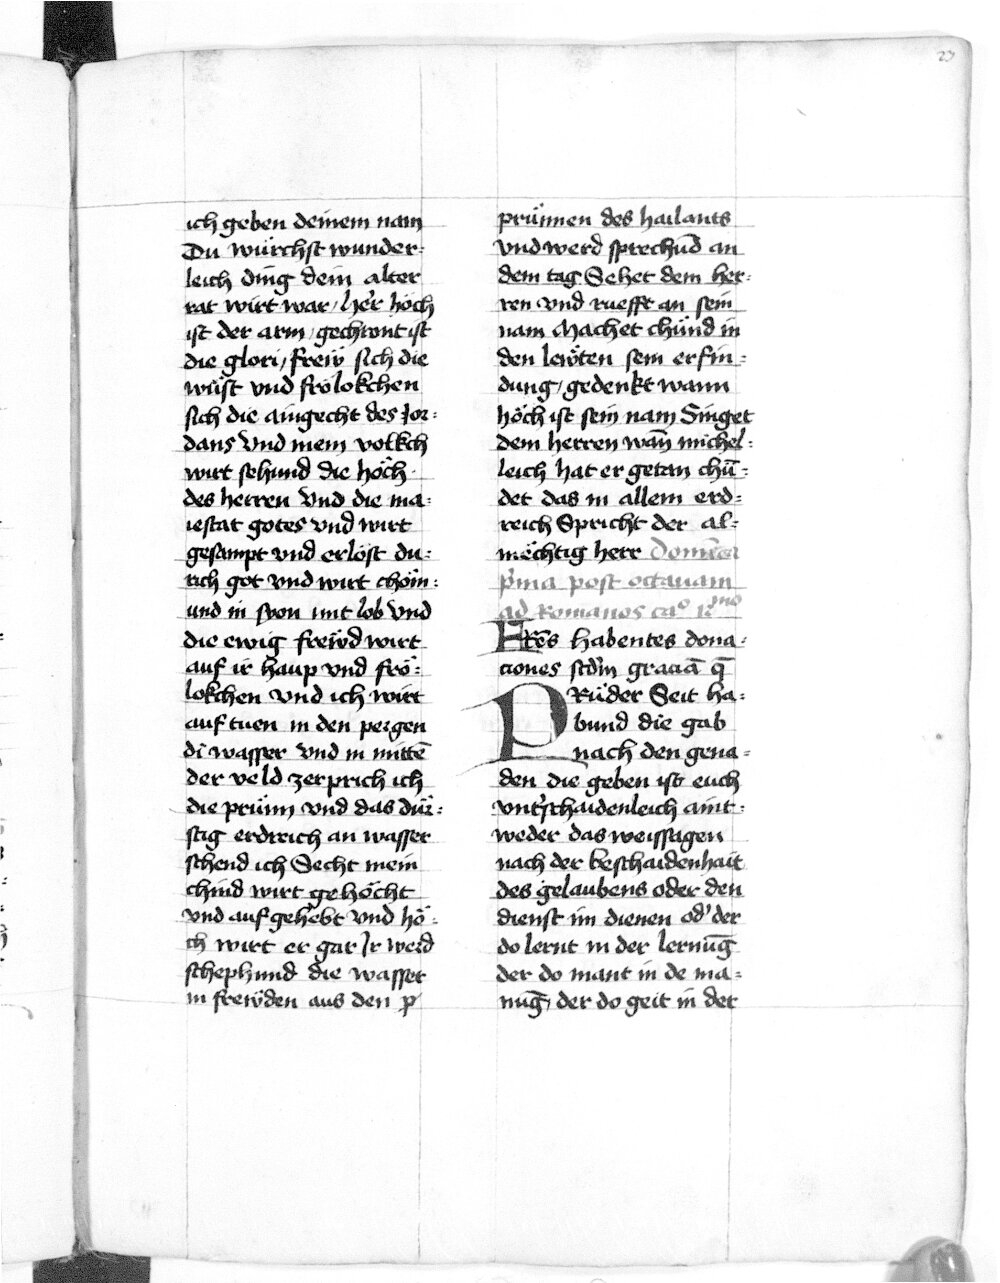 23
ich geben deinem nam
Du würchst wunder:
leich ding dein alter
rat wirt war / her höch
ist der arm / gechront ist
die glori / freẅ sich die
wüst vnd frölokchen
sich die aingecht des Jor:
dans Vnd mein volkch
wirt sehund die höch
des herren Vnd die ma:
iestat gotes vnd wirt
gesampt vnd erlöst du:
rich got vnd wirt chöm:
und in syon mit lob Vnd
die ewig freẅd wirt
auf ir haup vnd frö:
lokchen vnd ich wirt
auf tuen in den pergen
di wasser vnd in mittē
der veld zerprich ich
die prünn vnd das dür:
stig erdtreich an wasser
schend ich Secht mein
chind wirt gehöcht
vnd aufgehebt vnd hö:
ch wirt er gar Ir werd
schephund die wasser
in freẅden aus den p
prünnen des hailants
vnd werd sprechūd an
dem tag Sehet dem her:
ren vnd ruefft an sein
nam Machet chünd in
den leẅten sein erfin:
dung / gedenkt wann
höch ist sein nam Singet
dem herren wañ michel:
leich hat er getan chū:
det das in allem erd:
reich Spricht der al:
mechtig herr
pͥma post octauam
ad Romanos caͦ 12ᵐᵒ
Fr̄es habentes dona:
ciones scd̄m graciā q̄
PRüder Seit ha:
bund die gab
nach den gena:
den die geben ist euch
vnt'schaidenleich aint:
weder das weissagen
nach der beschaidenhait
des gelaubens oder den
dienst im dienen od' der
do lernt in der lernūg
der do mant in de ma:
nūg / der do geit in der